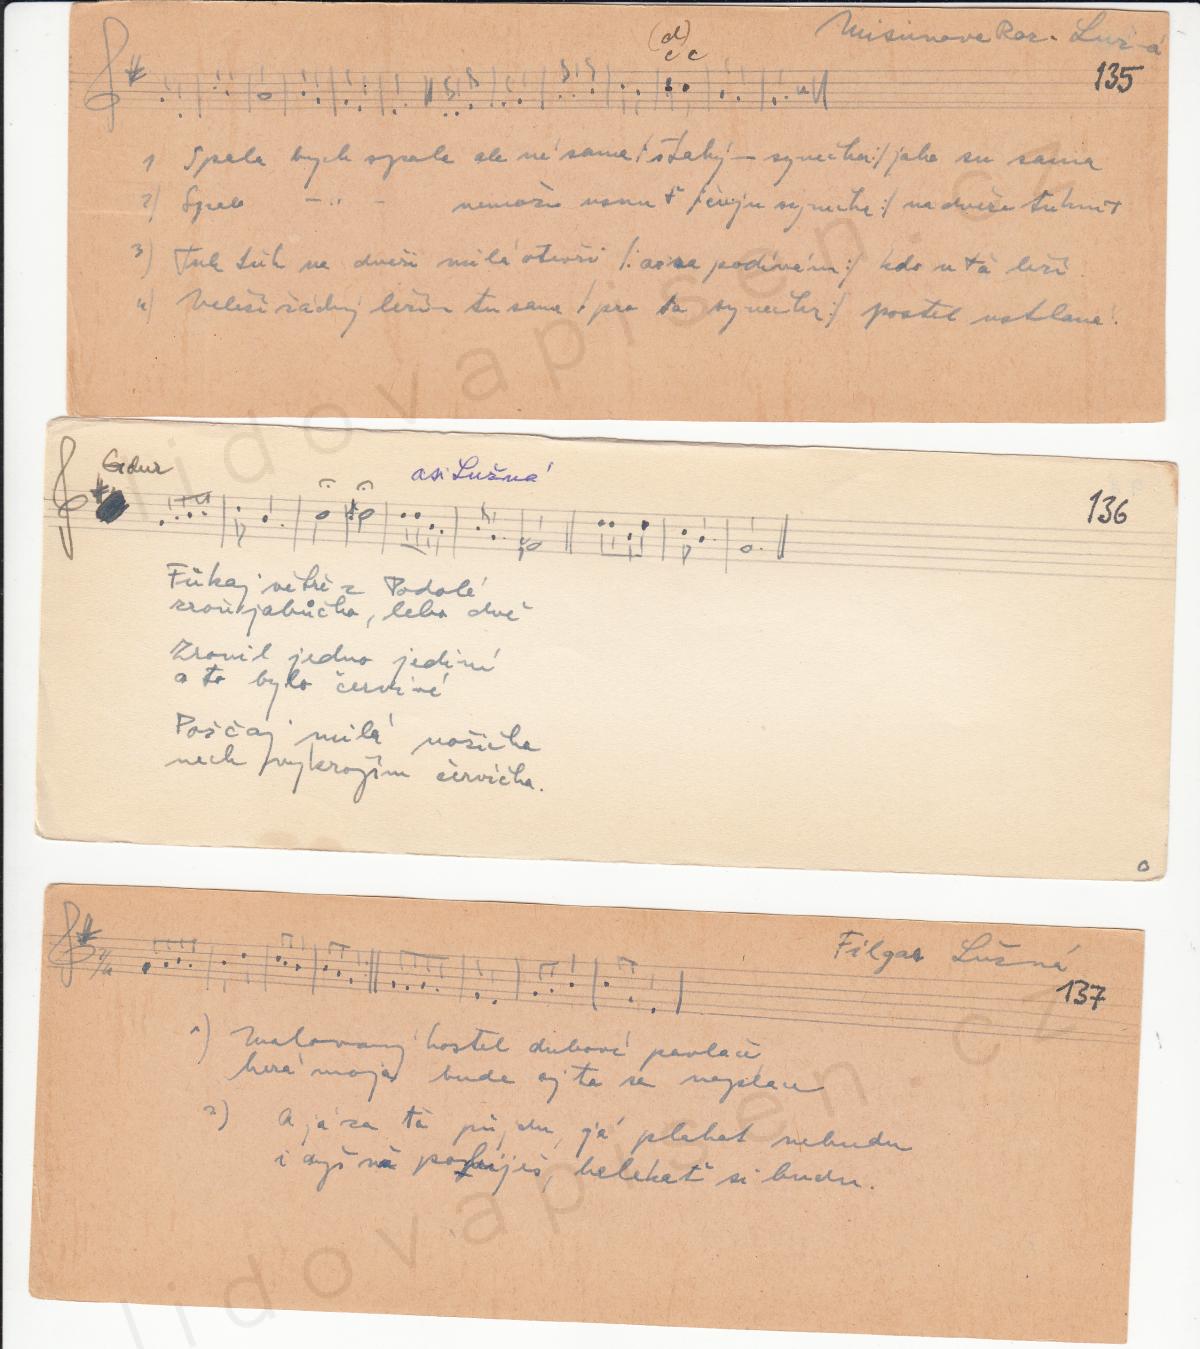 Misunova Roz. Lužná
135
(d)
c c
1 Spala bych spala ale né sama /: šťahý — synečka :/ jako su sama
2) Spala — " — nemožu usnut /: čuju synečka :/ na dveře tuknút
3) Tuk túk na dveři milá otevři /: ať sa podívám :/ kdo u tá leží
4) Neleží žádný ležím tu sama /: pro ťa synečku :/ postel ustlana.
G dur
asi Lužná
136
Fúkaj větře z Podolé
zroň jabúčko, lebo dvě
Zronil jedno jediné
a to bylo červivé
Poščaj milá nožíčka
nech vykrojím červíčka.
Filgas Lužná
137
2/4
1) Malovaný kostel dubové pavlače
herá moja bude aj ta se naplače
2) A já za tá půjdu, já plakat nebudu
i dyž ňa pobiješ, helekať si budu.
lidovapisen.cz
lidovapisen.cz